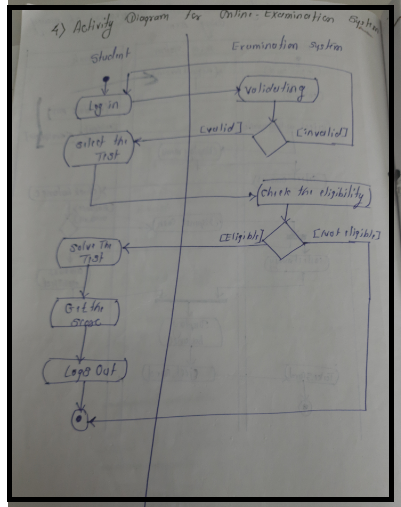 4) Activity Diagram for Online-Examination System
Student
Examination System
Log in
Validating
[valid]
[invalid]
Select the
Test
Check the eligibility
[Eligible]
[Not eligible]
Solve The
Test
Get the
Score
Logg Out